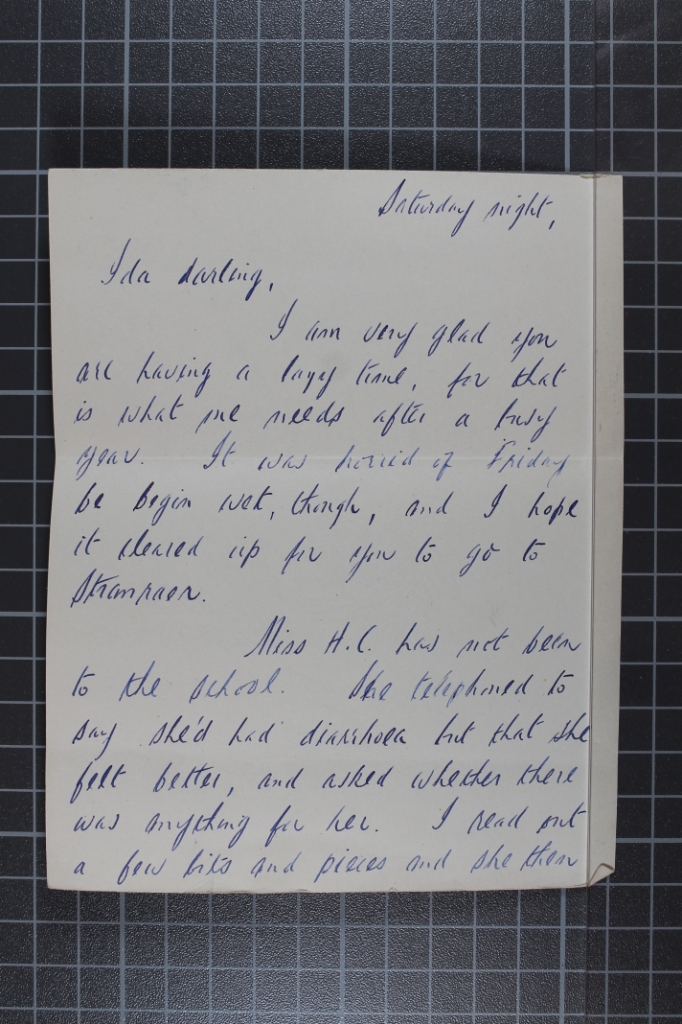 Saturday night,
Ida darling,
I am very glad you
are having a lazy time, for that
is what one needs after a busy
year. It was horrid of Friday
be begin wet, though, and I hope
it cleared up for you to go to
Stranraer.
Miss H.C. has not been
to the school. She telephoned to
say she'd had diarrhoea but that she
felt better, and asked whether there
was anything for her. I read out
a few bits and pieces and she then